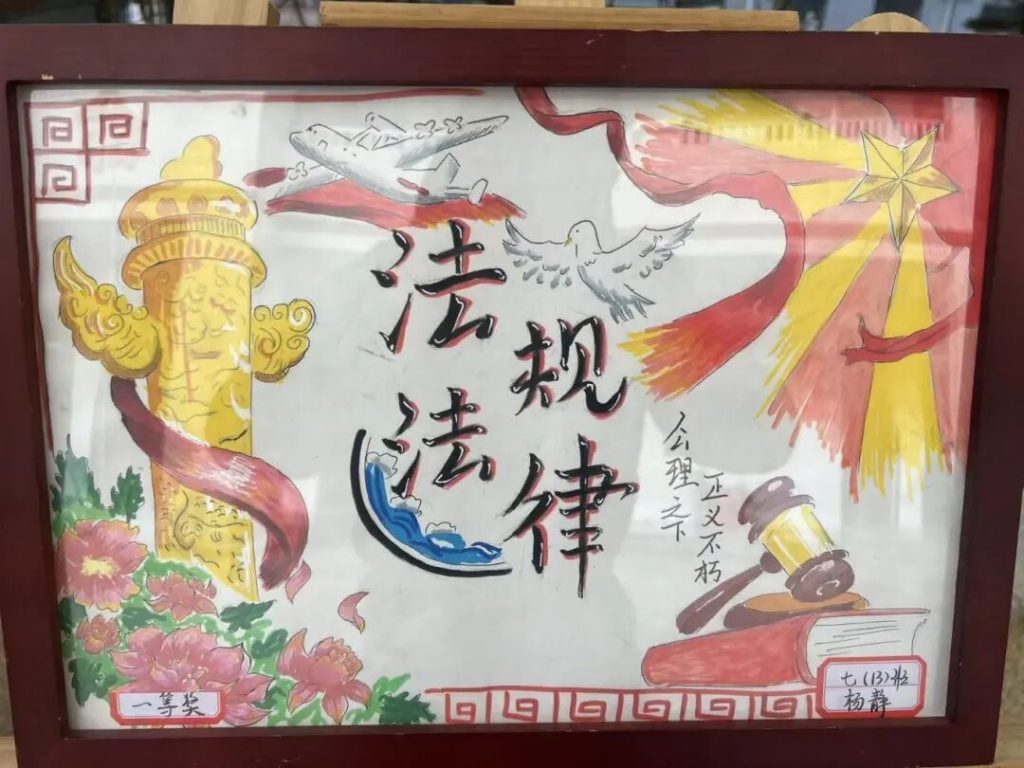 法规
法律
公理之下
正义不朽
一等奖
七(13)班
杨静